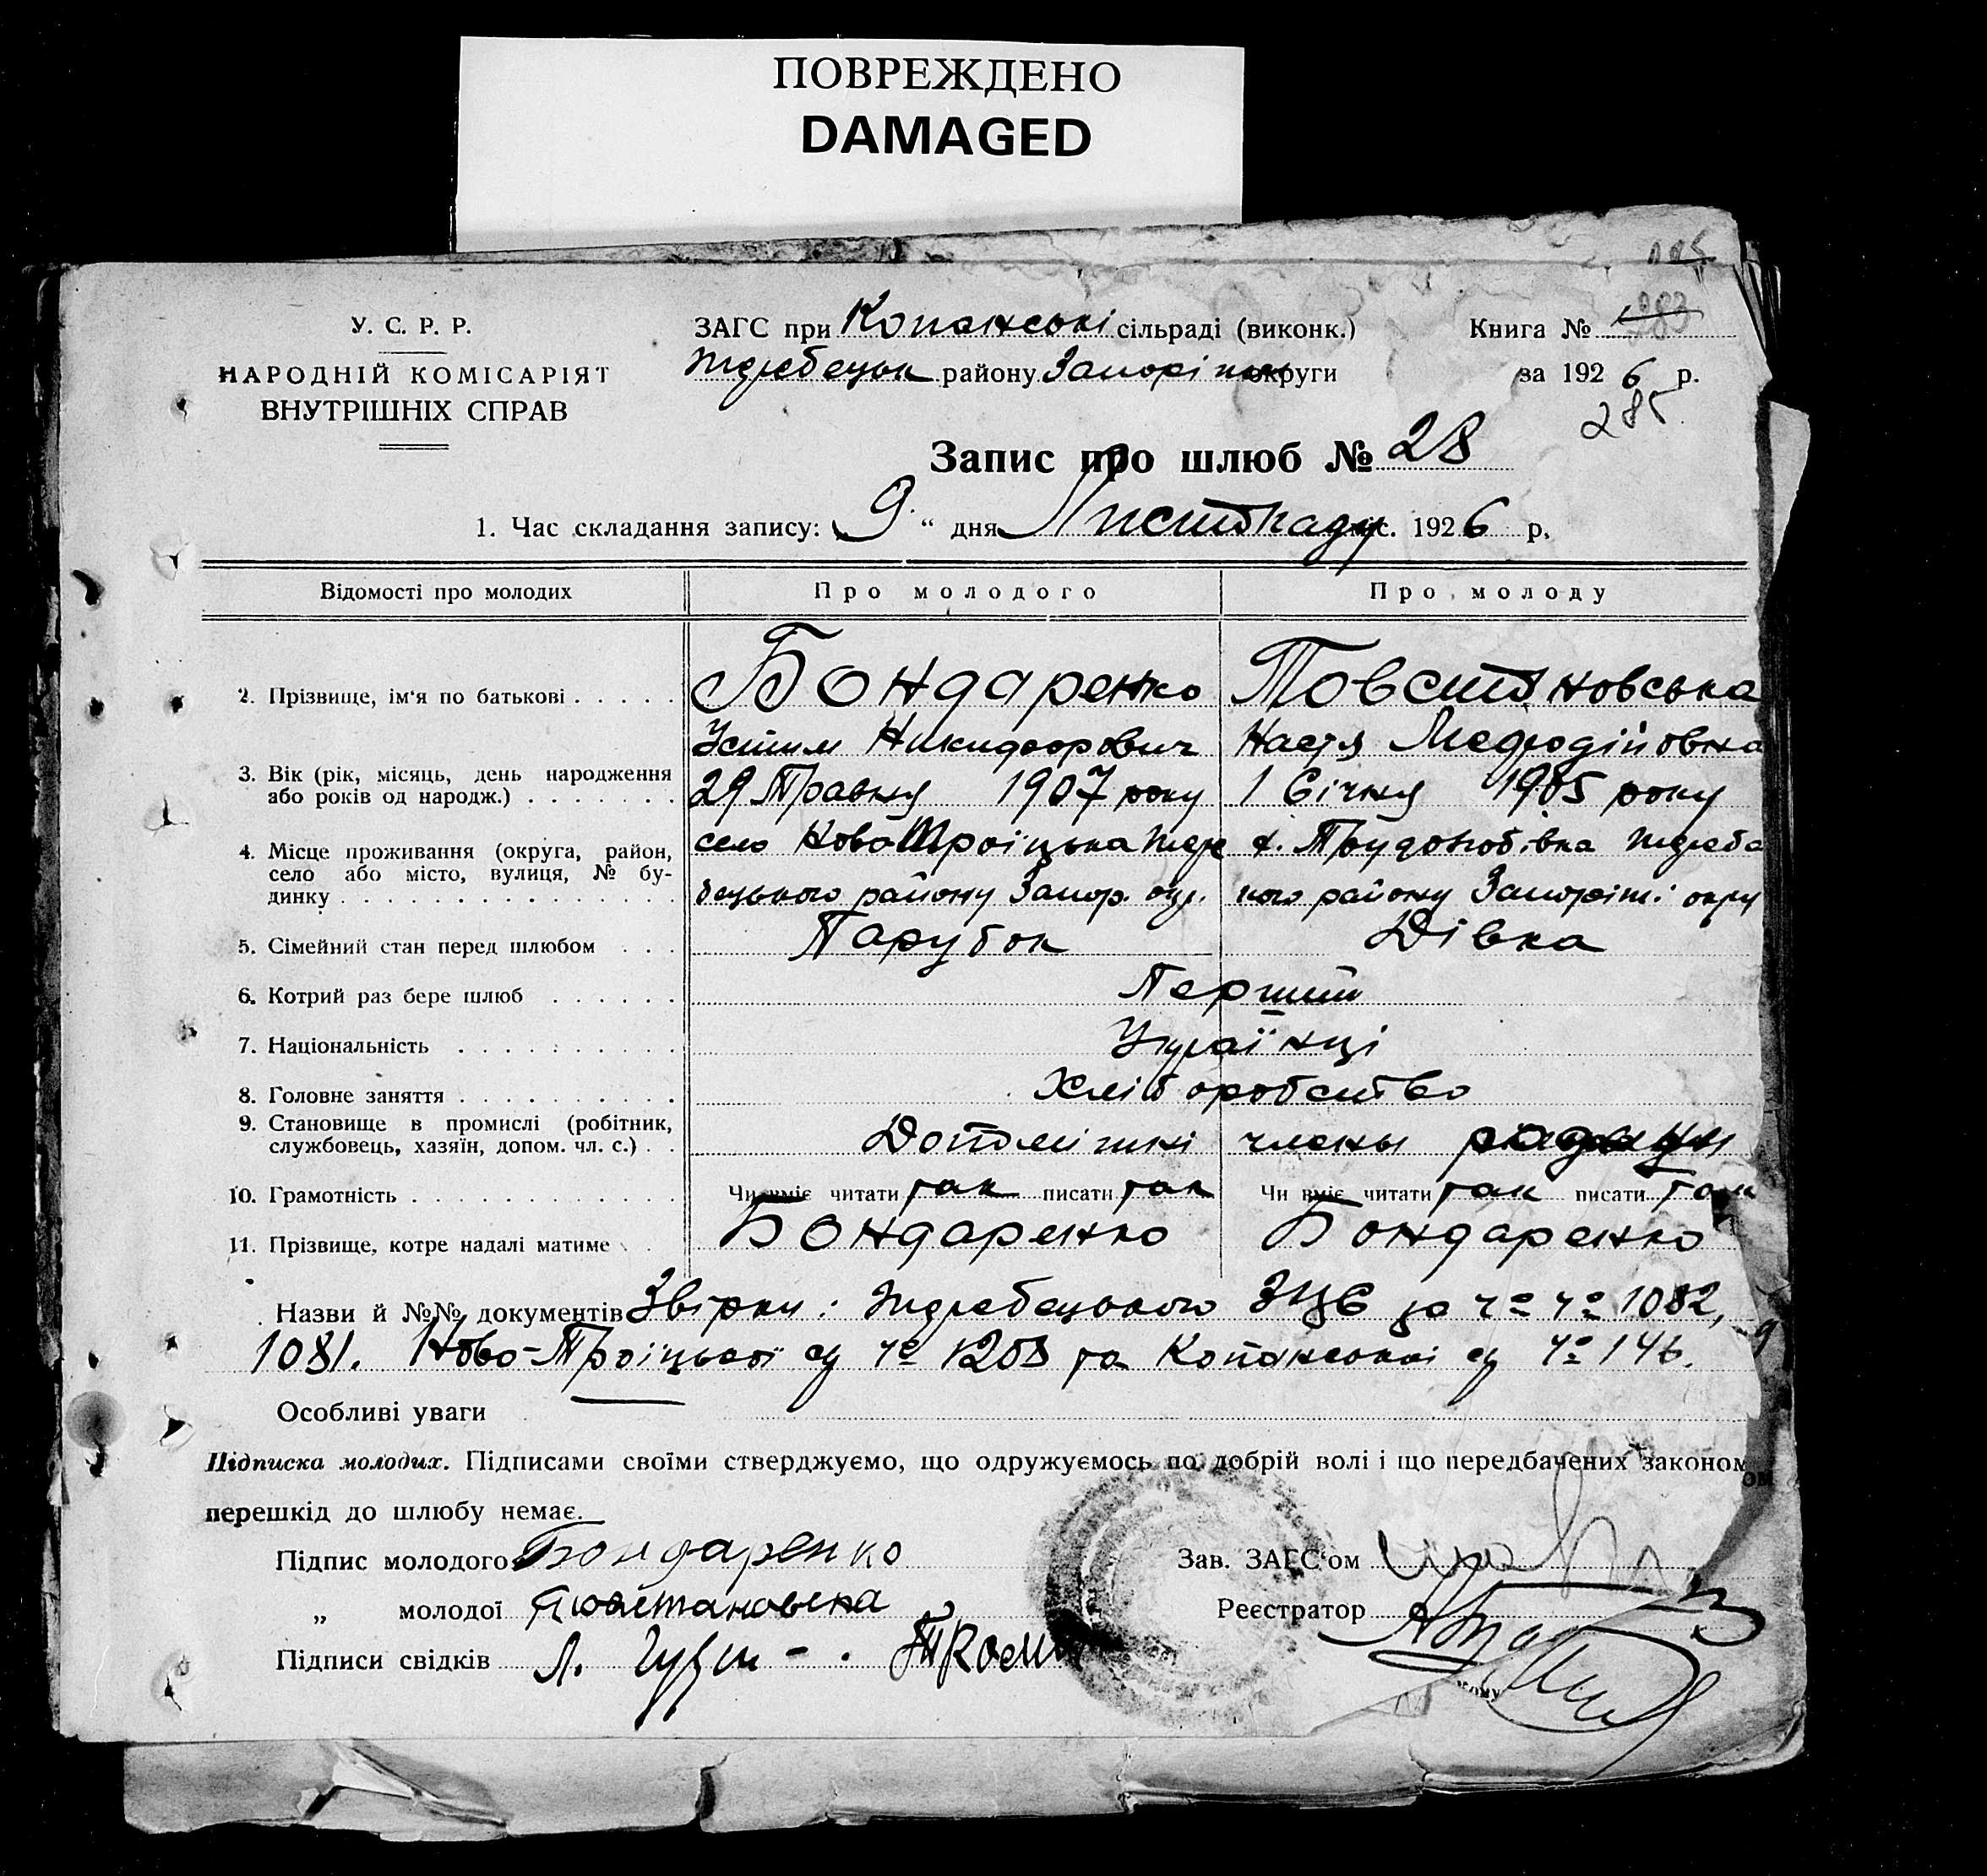 ПОВРЕЖДЕНО
DAMAGED
У. С. Р. Р.
НАРОДНІЙ КОМІСАРІЯТ
ВНУТРІШНІХ СПРАВ
ЗАГС при Копанські сільраді (виконк.)
Жеребецьк району Запоріжж округи
Книга № 283
за 1926 р.
285
Запис про шлюб № 28
1. Час складання запису: 9 “ дня Листопаду міс. 1926 р.
Відомості про молодих Про молодого Про молоду
2. Прізвище, ім‘я по батькові Бондаренко Товстоновська
Устим Никифорович Настя Мефодіївна
3. Вік (рік, місяць, день народження або років од народж.) 29 Травня 1907 року 1 Січня 1905 року
4. Місце проживання (округа, район, село або місто, вулиця, № будинку село Ново Троїцька Жере х. Трудолюбівка Жереба
бецького району Запор. окр. кого району Запоріж: окру
5. Сімейний стан перед шлюбом Парубок Дівка
6. Котрий раз бере шлюб Перший
7. Національність Українці
8. Головне заняття Хліборобство
9. Становище в промислі (робітник, службовець, хазяїн, допом. чл. с.) Допоміжні члены родины
10. Грамотність Чи вміє читати так писати так Чи вміє читати так писати так
11. Прізвище, котре надалі матиме Бондаренко Бондаренко
Назви й №№ документів Звірки: Жеребецького за ч° ч° 1082,
1081. Ново-Троїцької су ч° 1208 та Копанської су ч° 146.
Особливі уваги
Підписка молодих. Підписами своїми стверджуємо, що одружуємось по добрій волі і що передбачених законом
перешкід до шлюбу немає.
Підпис молодого Бондаренко
„ молодої Товстановска
Підписи свідків Л.
Зав. ЗАГС‘ом
Реєстратор